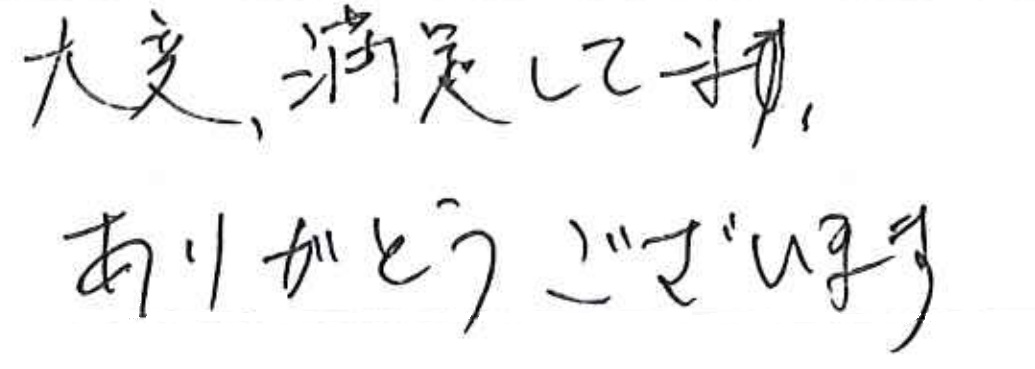 大変、満足してます、
ありがとうございます